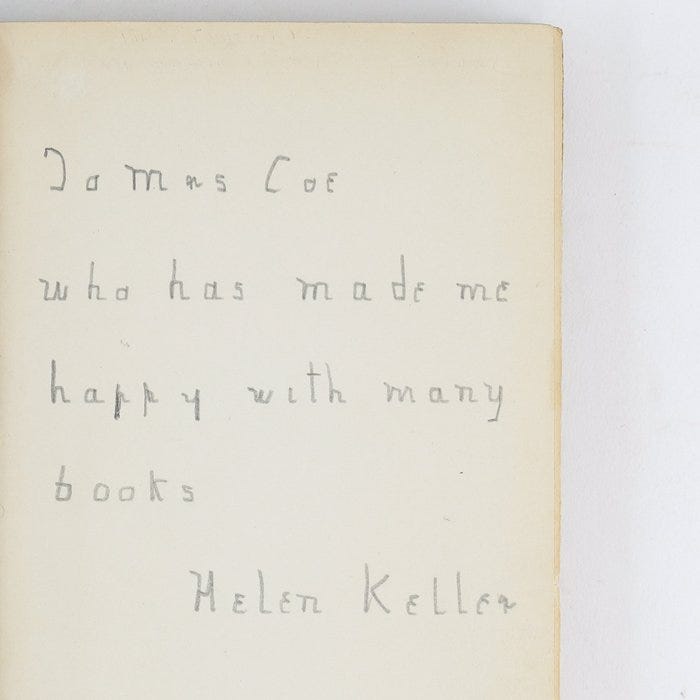 To Mrs Coe
who has made me
happy with many
books
Helen Keller